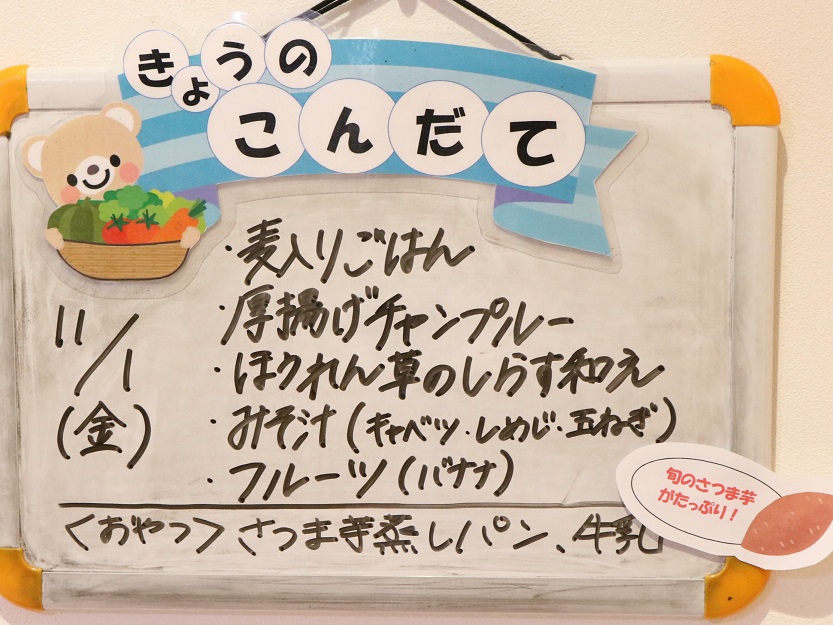 きょうの
こんだて
11/1
(金)
・麦入りごはん
・厚揚げチャンプルー
・ほうれん草のしらす和え
・みそ汁(キャベツ・しめじ・玉ねぎ)
・フルーツ(バナナ)
<おやつ>さつま芋蒸しパン、牛乳
旬のさつま芋
がたっぷり!